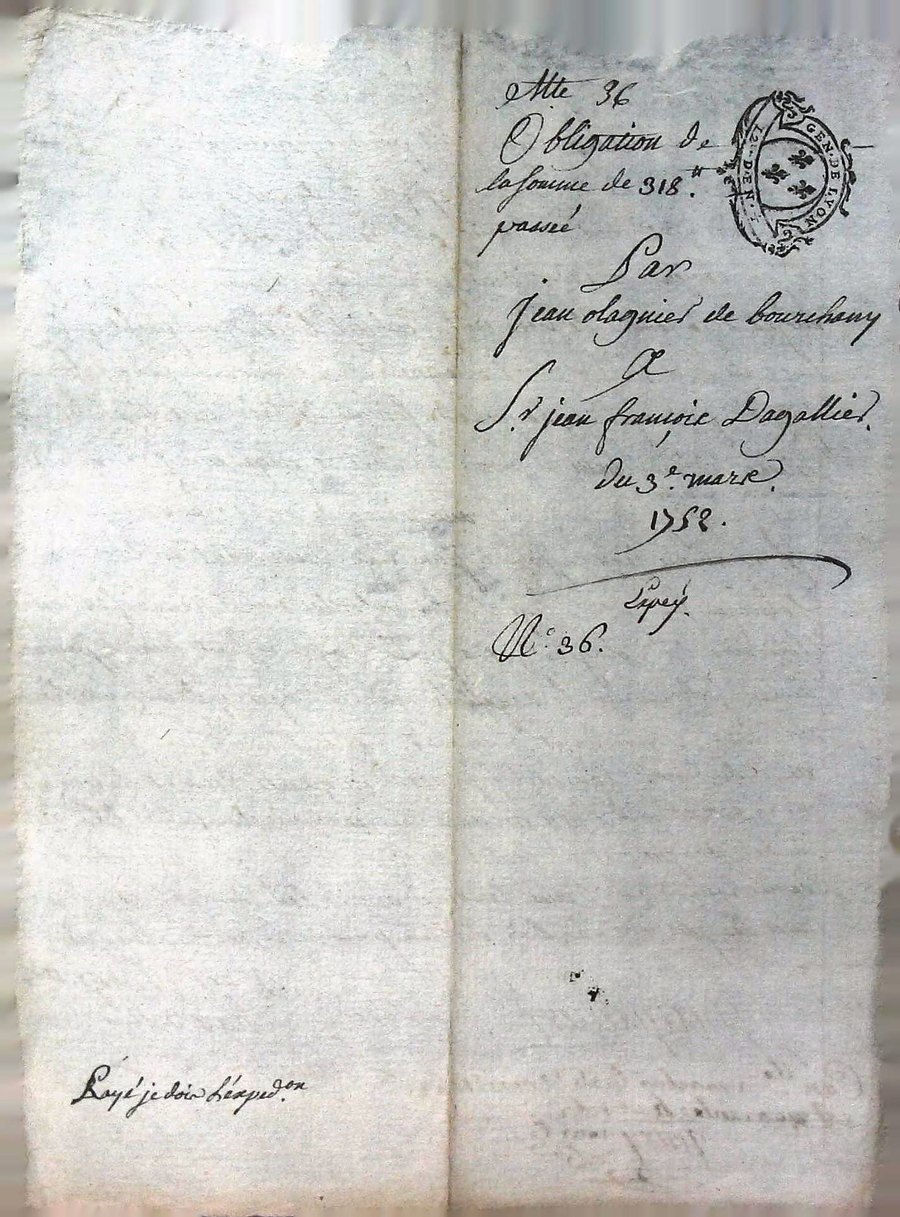 36
Obligation de
la somme de 318.tt
passeé
Par
jean olagnier de bourchany
A
S.r jean françois Dagallier.
du 3.e mars.
1752.
N.o 36.
GEN. DE LYON
Payé je dois L'exped.on